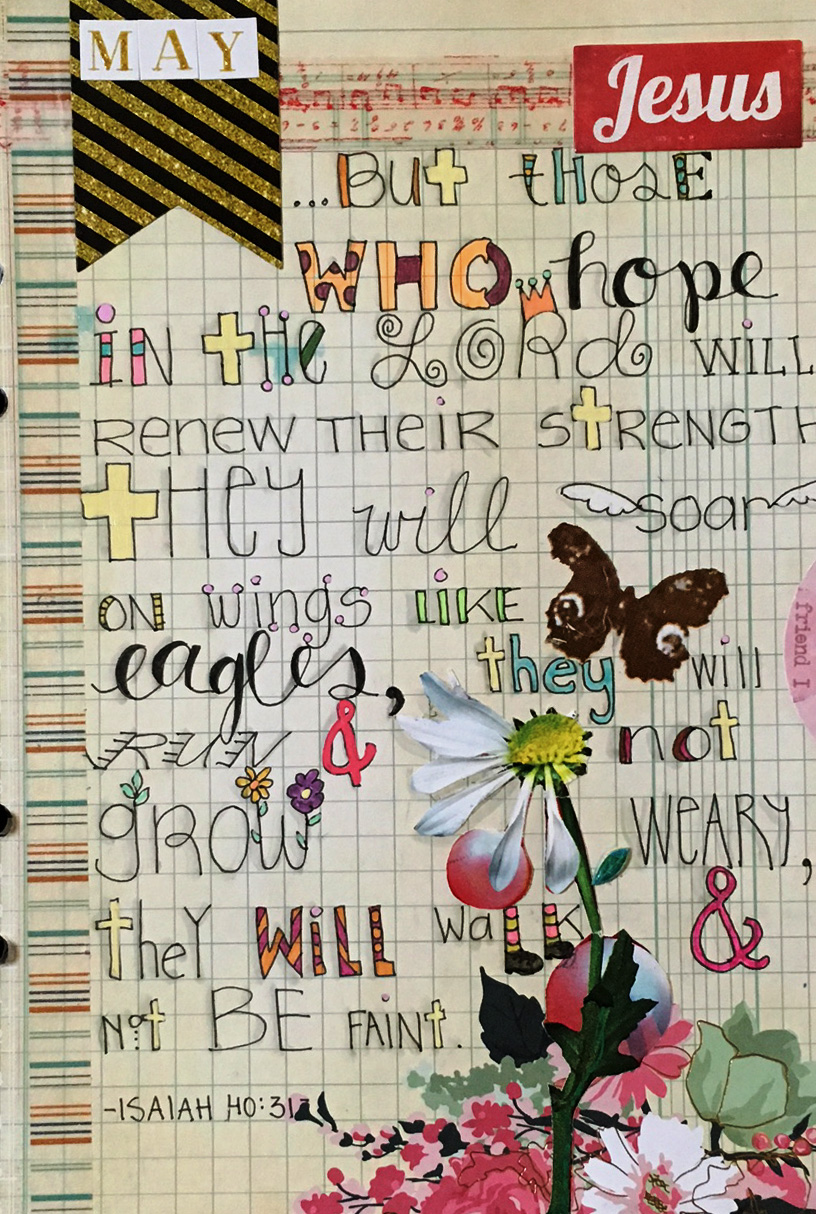 MAY
Jesus
...But those
WHO hope
IN the LORd WiLL
Renew THeiR STRENGTH
tHEY will soar
ON wings LIKE
eagles, they will
RUN & not
gROW WeARY,
theY WiLL WaLK &
Not BE FAINt.
-ISAIAH 40:31
friend I